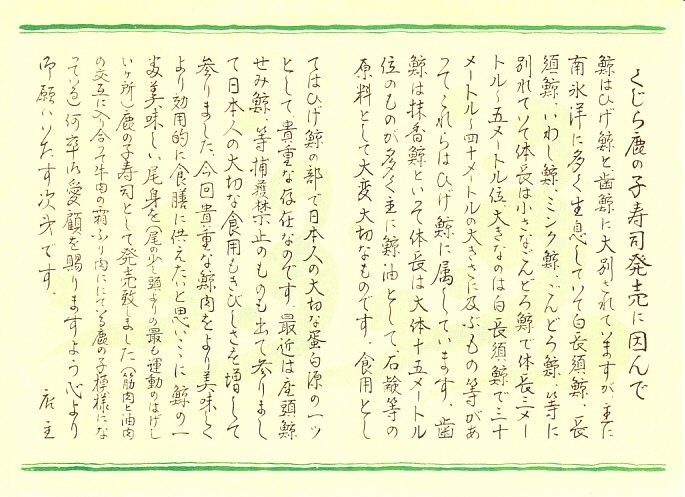 くじら鹿の子寿司発売に因んで
鯨はひげ鯨と歯鯨に大別されていますが、主に
南氷洋に多く生息していて白長須鯨、長
須鯨、いわし鯨、ミンク鯨、ごんどう鯨、等に
別れていて体長は小さなごんどう鯨で体長三メー
トル〜五メートル位、大きなのは白長須鯨で三十
メートル〜四十メートルの大きさに及ぶもの等があ
ってこれらはひげ鯨に属しています。歯
鯨は抹香鯨といって体長は大体十五メートル
位のものが多く主に鯨油として、石鹸等の
原料として大変大切なものです。食用とし
てはひげ鯨の部で日本人の大切な蛋白源の一ッ
として貴重な存在なのです。最近は座頭鯨
せみ鯨、等捕獲禁止のものも出て参りまし
て日本人の大切な食用もきびしさを増して
参りました、今回貴重な鯨肉をより美味しく
より効用的に食膳に供えたいと思いここに鯨の一
番美味しい尾身を(尾の少し頭よりの最も運動のはげし
いヶ所)鹿の子寿司として発売致しました(筋肉と油肉
の交互に入り合って牛肉の霜ふり肉ににている鹿の子模様にな
っている)何卒御愛顧を賜りますよう心より
御願いいたす次第です。
店主